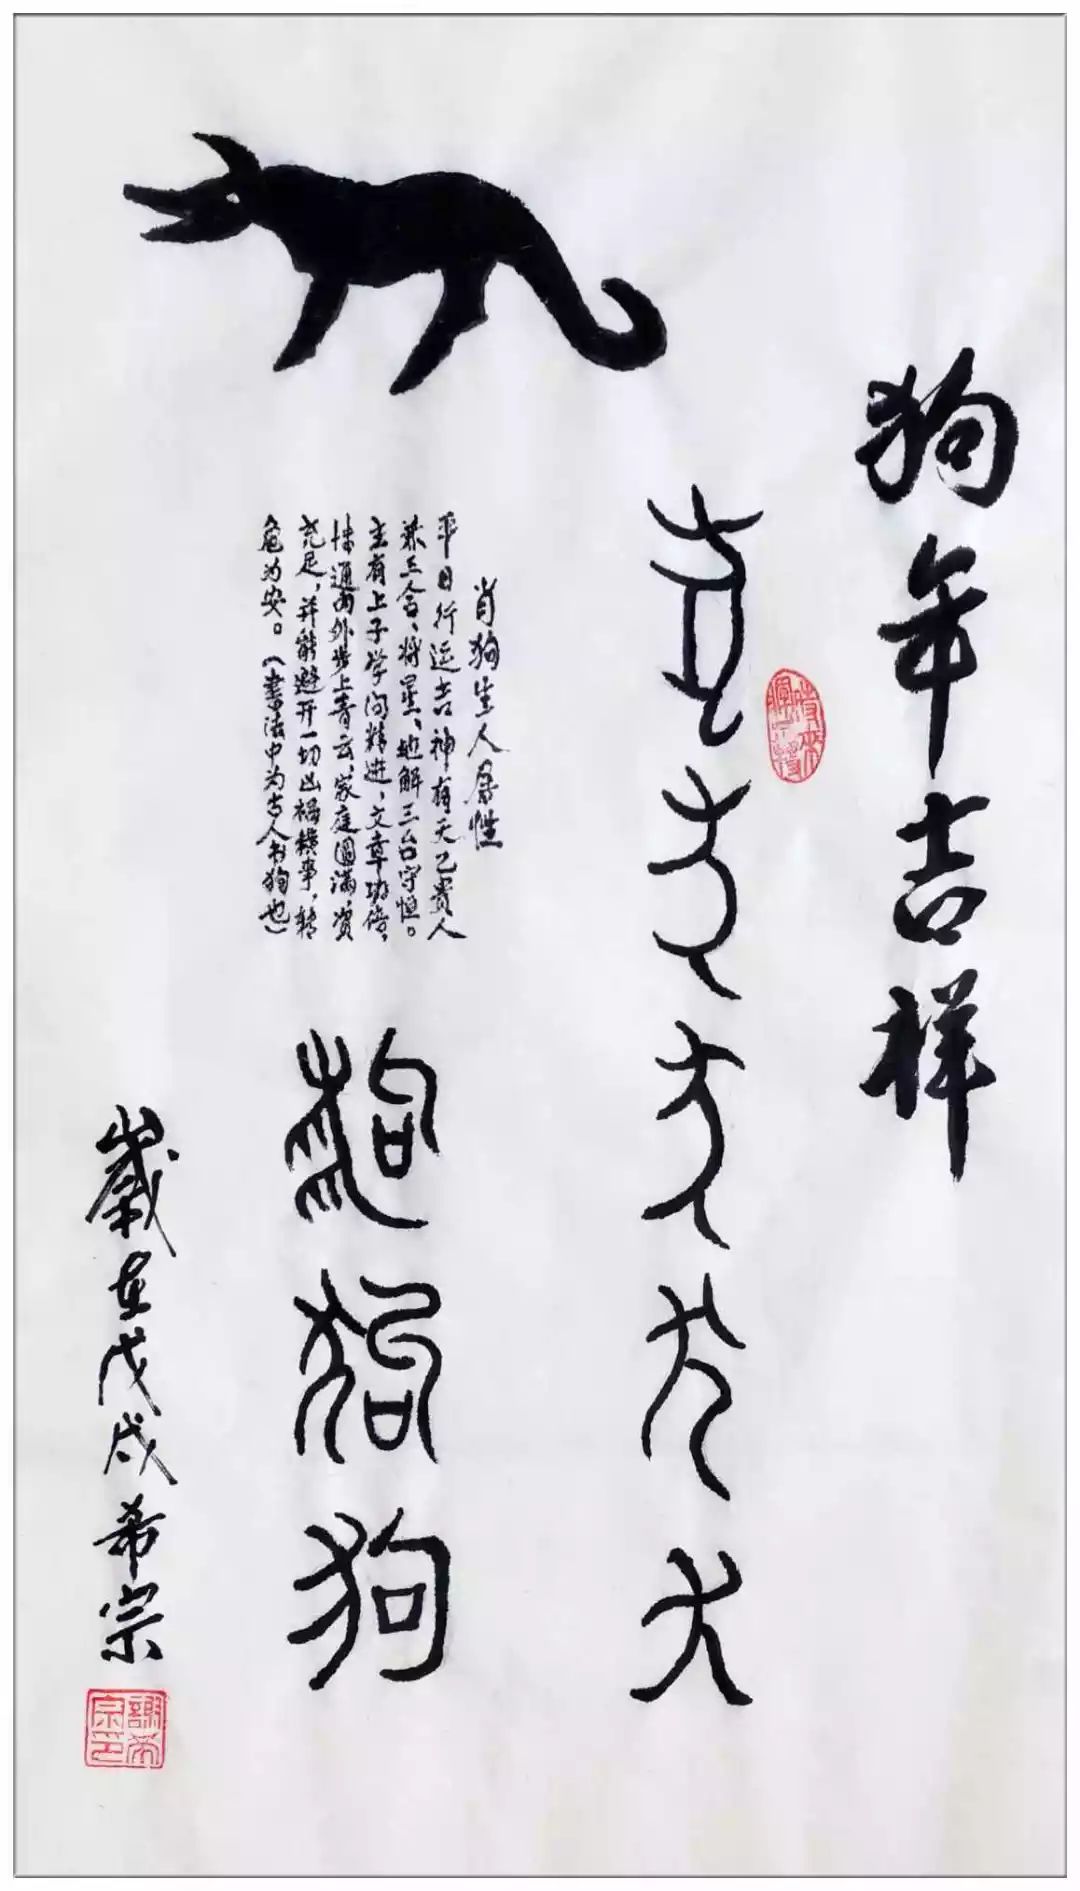 狗年吉祥
犬犬犬犬犬
肖狗生人属性
平日行运吉神有天乙贵人
兼三合、将星、地解三台守恒。
主有上子学问精进,文章功倍,
体通内外步上青云,家庭圆满,资
充足,并能避开一切凶祸横事,转
危为安。(書法中为古人书狗也)
狗狗狗
岁在戊戌希宗